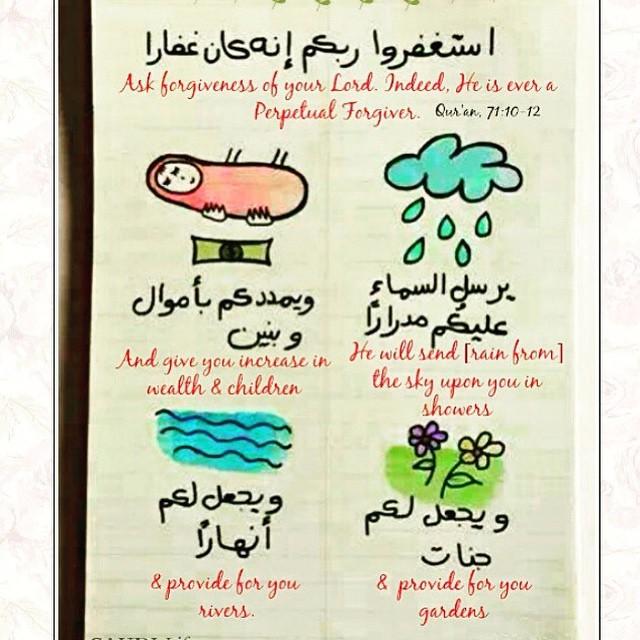 استغفروا ربكم إنه كان غفارا
Ask forgiveness of your Lord. Indeed, He is ever a
Perpetual Forgiver. Qur'an, 71:10-12
يرسل السماء
عليكم مدرارًا
He will send [rain from]
the sky upon you in
showers
ويمددكم بأموال
وبنين
And give you increase in
wealth & children
ويجعل لكم
جنات
& provide for you
gardens
ويجعل لكم
أنهارًا
& provide for you
rivers.